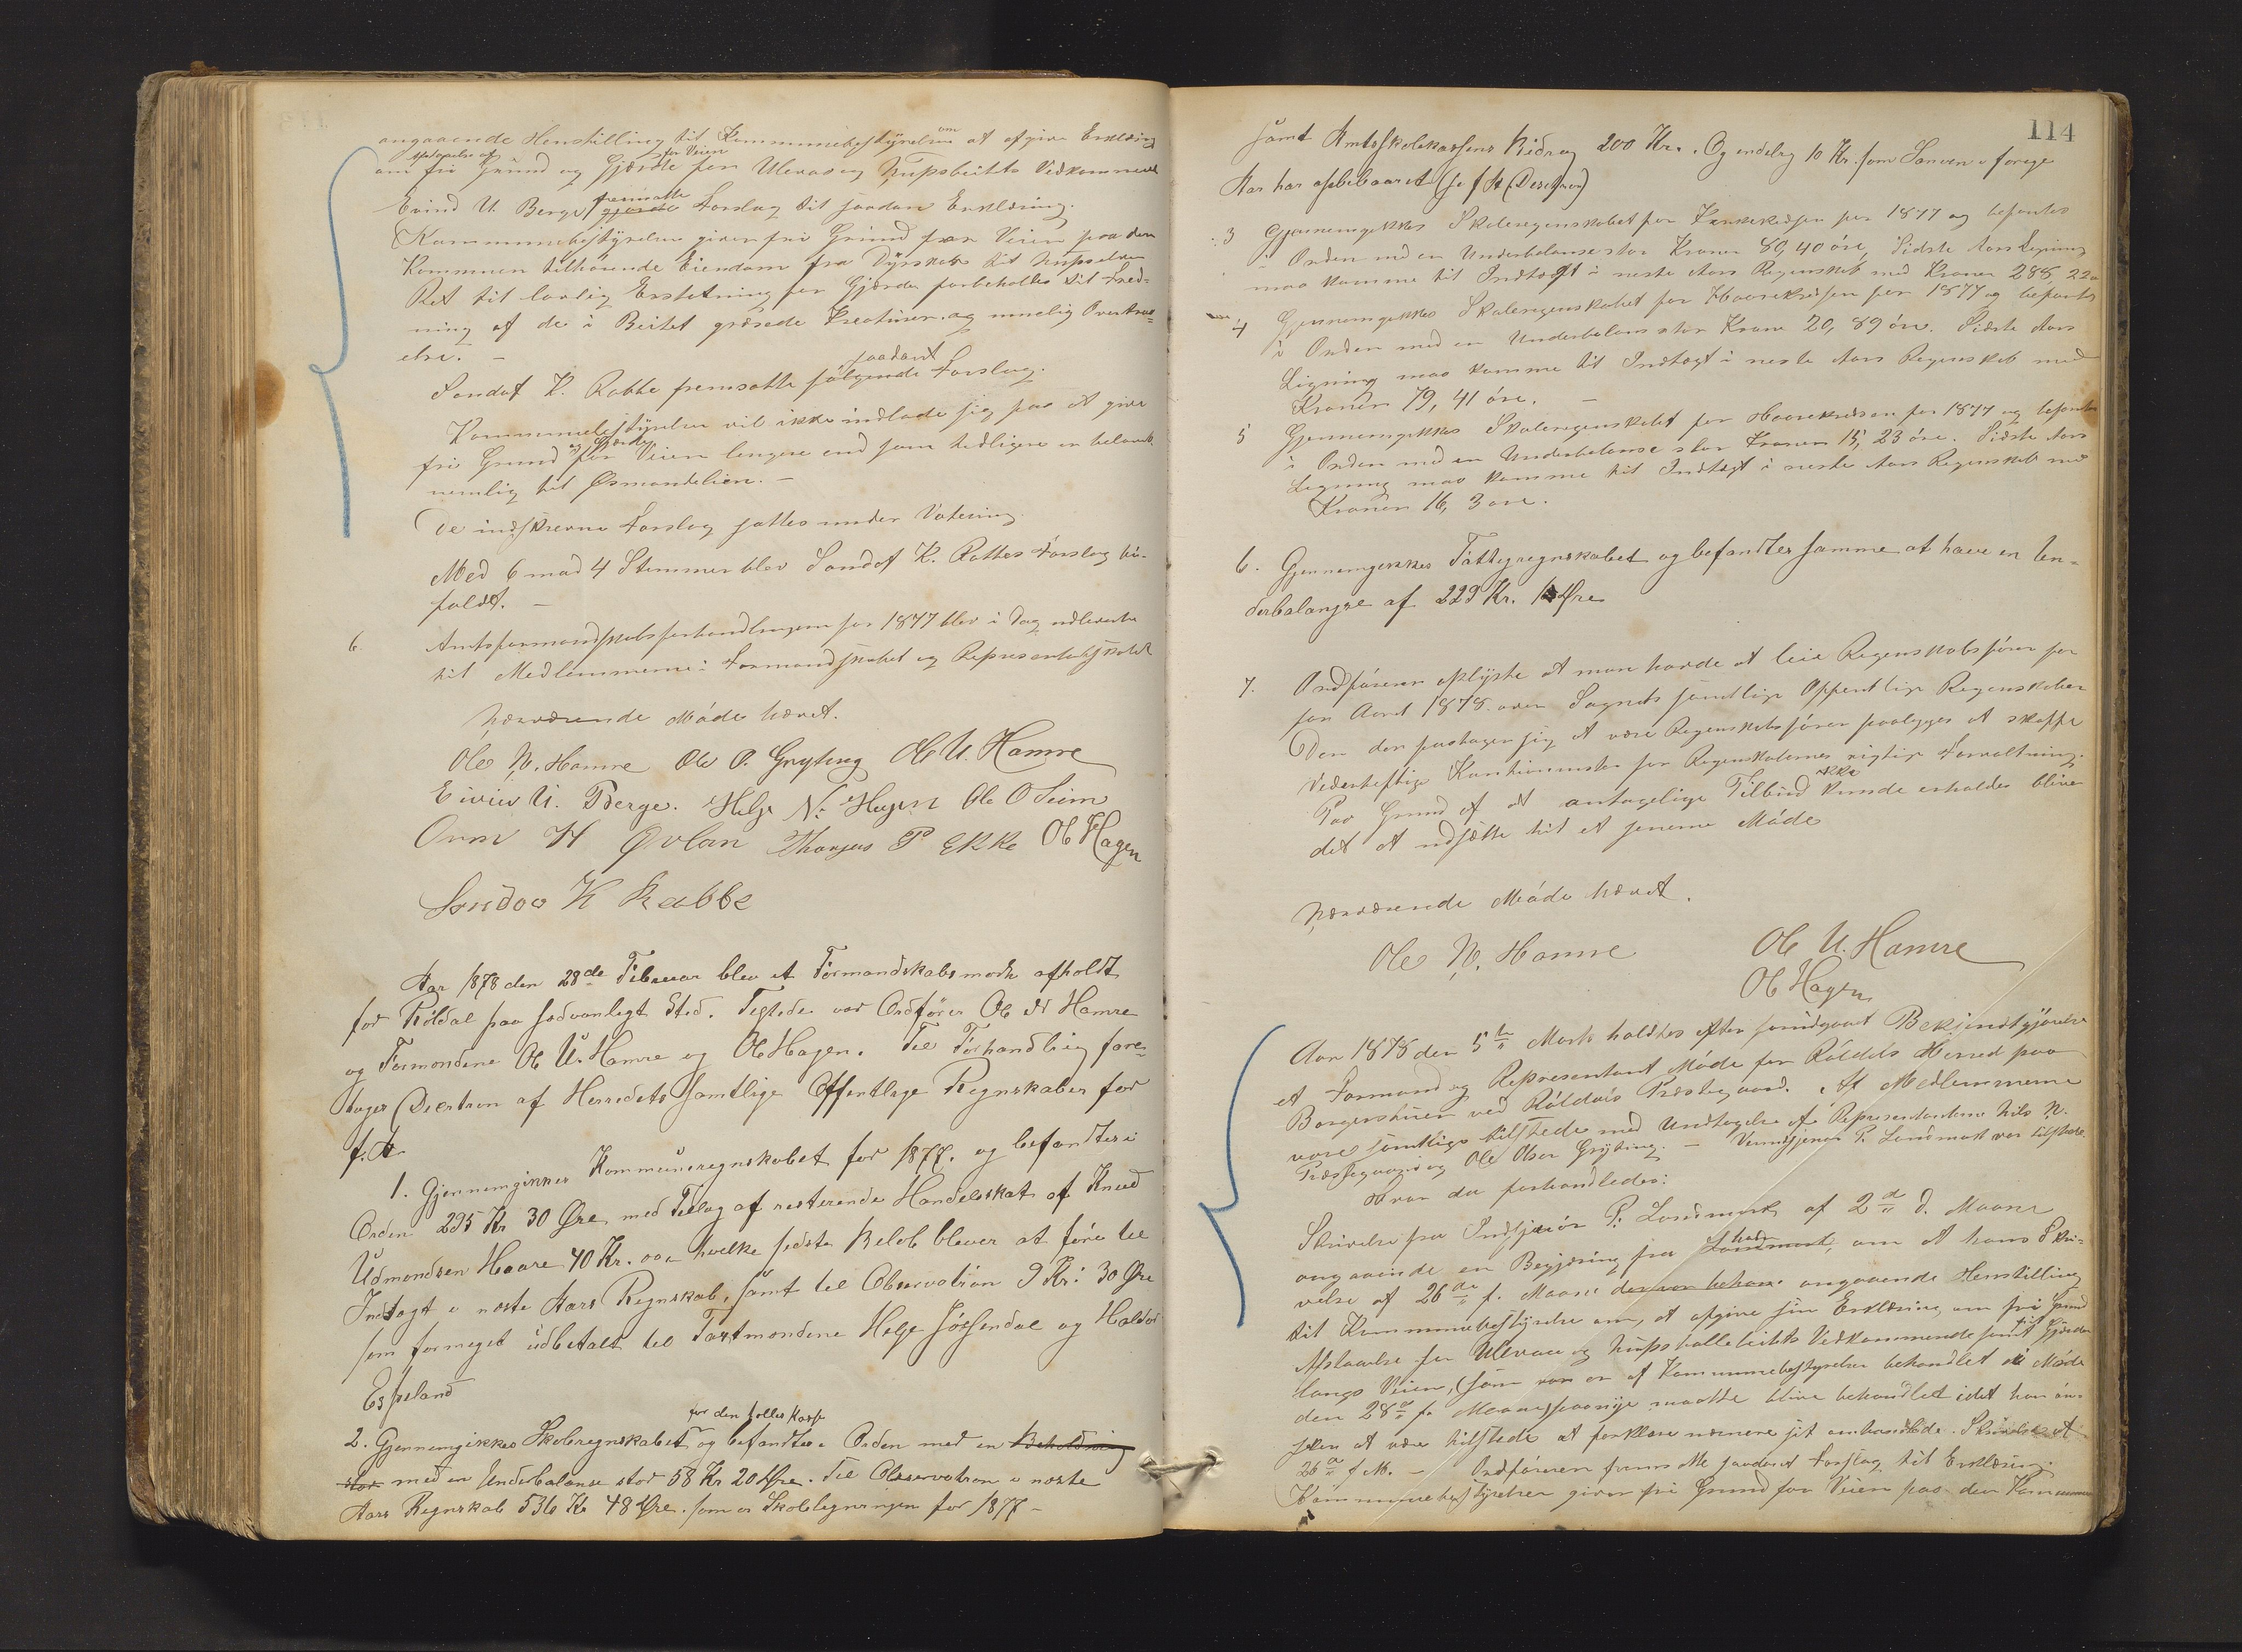 angaaende Henstilling til Kommunebestyrelsen om at afgive Erklæring
om fri Grund og Gjærde for Veien for Ulevaa og Nupsbeitts Vedkommende
Eivind U. Berge fremsatte Forslag til saadan Erklæring.
Kommunebestyrelsen giver fri Grund for Veien paa den
Kommunen tilhørende Eiendom fra Dyrskar til Nupselven
Ret til lovlig Erstatning for Gjærde forbeholdes til Fred-
ning af de i Beitet græsede Kreaturer og mulig Overtræ-
else. –
Sandof K. Rabbe fremsatte saadant følgende Forslag.
Kommunebestyrelsen vil ikke indlade sig paa at give
fri Grund og Gjærde for Veien lengere end som tidligere er belovet
nemlig til Øsmandelien. –
De indskrevne Forslag sattes under Votering
Med 6 mod 4 Stemmer blev Sandof K. Rabbes Forslag bi-
faldt. –
6. Amtsformandskabsforhandlingerne for 1877 blev i Dag udleverte
til Medlemmerne i Formandskabet og Representantskabet
Nærværende Møde hævet.
Ole N. Hamre Ole O. Gryting Ole U. Hamre
Eivin U. Berge. Helje N. Hagen Ole O Seim
Orm H Øvlan Thorgius P Ekke Ol Hagen
Sondov K Rabbe
Aar 1878 den 28de Februar blev et Formandskabsmøde afholdt
for Röldal paa sedvanligt Sted. Tilstede var Ordfører Ole N Hamre
og Formændene Ole U. Hamre og Ol Hagen. Til Forhandling fore-
tages Decision af Herredets samtlige Offentlige Regnskaber for
f. A.
1. Gjennemgikkes Kommuneregnskabet for 1877. og befandtes i
Orden 295 Kr 30 Øre med Tillæg af resterende Handelsskat af Knud
Udmondsen Haare 40 Kr. hvilke sidste Beløb bliver at føre til
Indtægt i næste Aars Regnskab, samt til Observation 9 Kr: 30 Øre
som formeget udbetalt til Takstmændene Helje Jøssendal og Haldor
Espeland
2. Gjennemgikkes Skoleregnskabet for den felles Kasse og befandtes i Orden med en Beholdning
stor med en Underbalanse stor 58 Kr 20 Øre. Til Observation i næste
Aars Regnskab 536 Kr 48 Øre. som er Skoleligningen for 1877 –
114
samt Amtsskolekassens Bidrag 200 Kr. Og endelig 10 Kr. som i forige
Aar har oppebaaret
3 Gjennemgikkes Skoleregnskabet for Kredsen for 1877 og befantes
i Orden med en Underbalanse stor Kroner 80,40 øre, Sidste Aars Ligning
maa komme til Indtægt i neste Aars Regnskab med Kroner 288,22
4 Gjennemgikkes Skoleregnskabet for Haarekredsen for 1877 og befantes
i Orden med en Underbalans stor Krone 20,89 øre. Sidste Aars
Ligning maa komme til Indtægt i neste Aars Regenskab med
Kroner 79,41 øre. –
5 Gjennemgikkes Skoleregenskabet for Haarekredsen for 1877 og befantes
i Orden med en Underbalanse stor Kroner 15,23 øre. Sidste Aars
Ligning maa komme til Indtægt i neste Aars Regenskab med
Kroner 16,3 øre.
6. Gjennemgikkes Fattigregnskabet og befandtes samme at have en Un-
derbalangse af 229 Kr. Øre
7. Ordføreren oplyste at man havde at leie Regenskabsfører for
for Aaret 1878 over Sognets samtlige Offentlige Regenskaber
Den der paatager sig at være Regenskabsfører paalegges at skaffe
Vederheftige Kautionister for Regenskabernes rigtige Forvaltning.
Paa Grund af at antagelige Tilbud ikke kunde erholdes bliver
det at udsætte til et senere Møde
Nærværende Møde hævet.
Ole N. Hamre Ole U. Hamre
Ol Hagen
Aar 1878 den 5te Marts holdtes efter forudgaaet Bekjendtgjørelse
et Formand og Representant Møde for Röldals Herred paa
Borgerstuen ved Röldals Præstegaard. Af Medlemmerne
vare samtlige tilstede med Undtagelse af Representanterne Nils N.
Præstegaard og Ole Olsen Gryting. – P. Landmark var tilstede.
Hvor da forhandledes:
Skrivelse fra Indsjeniør P. Landmark af 2den d. Maane
angaaende en Begjæring fra ham Landmark, om at hans Skri-
velse af 26de f. Maane der var behan angaaende Henstilling
til Kommunebestyrelsen om, at afgive sin Erklæring om fri Grund
Afstaaelse for Ulevaa og Nupshallebeitts Vedkommende samt til Gjærder
langs Veien, (som var er af Kommunebestyrelsen behandlet i Møde
den 28de f. Maane) paany maatte blive behandlet idet han øn-
sker at være tilstede at forklare nærmere sit omhandlede Skrivelse af
26de f M. – Ordføreren fremsatte saadant Forslag til Erklæring.
Kommunebestyrelsen giver fri Grund for Veien paa den Kommunen